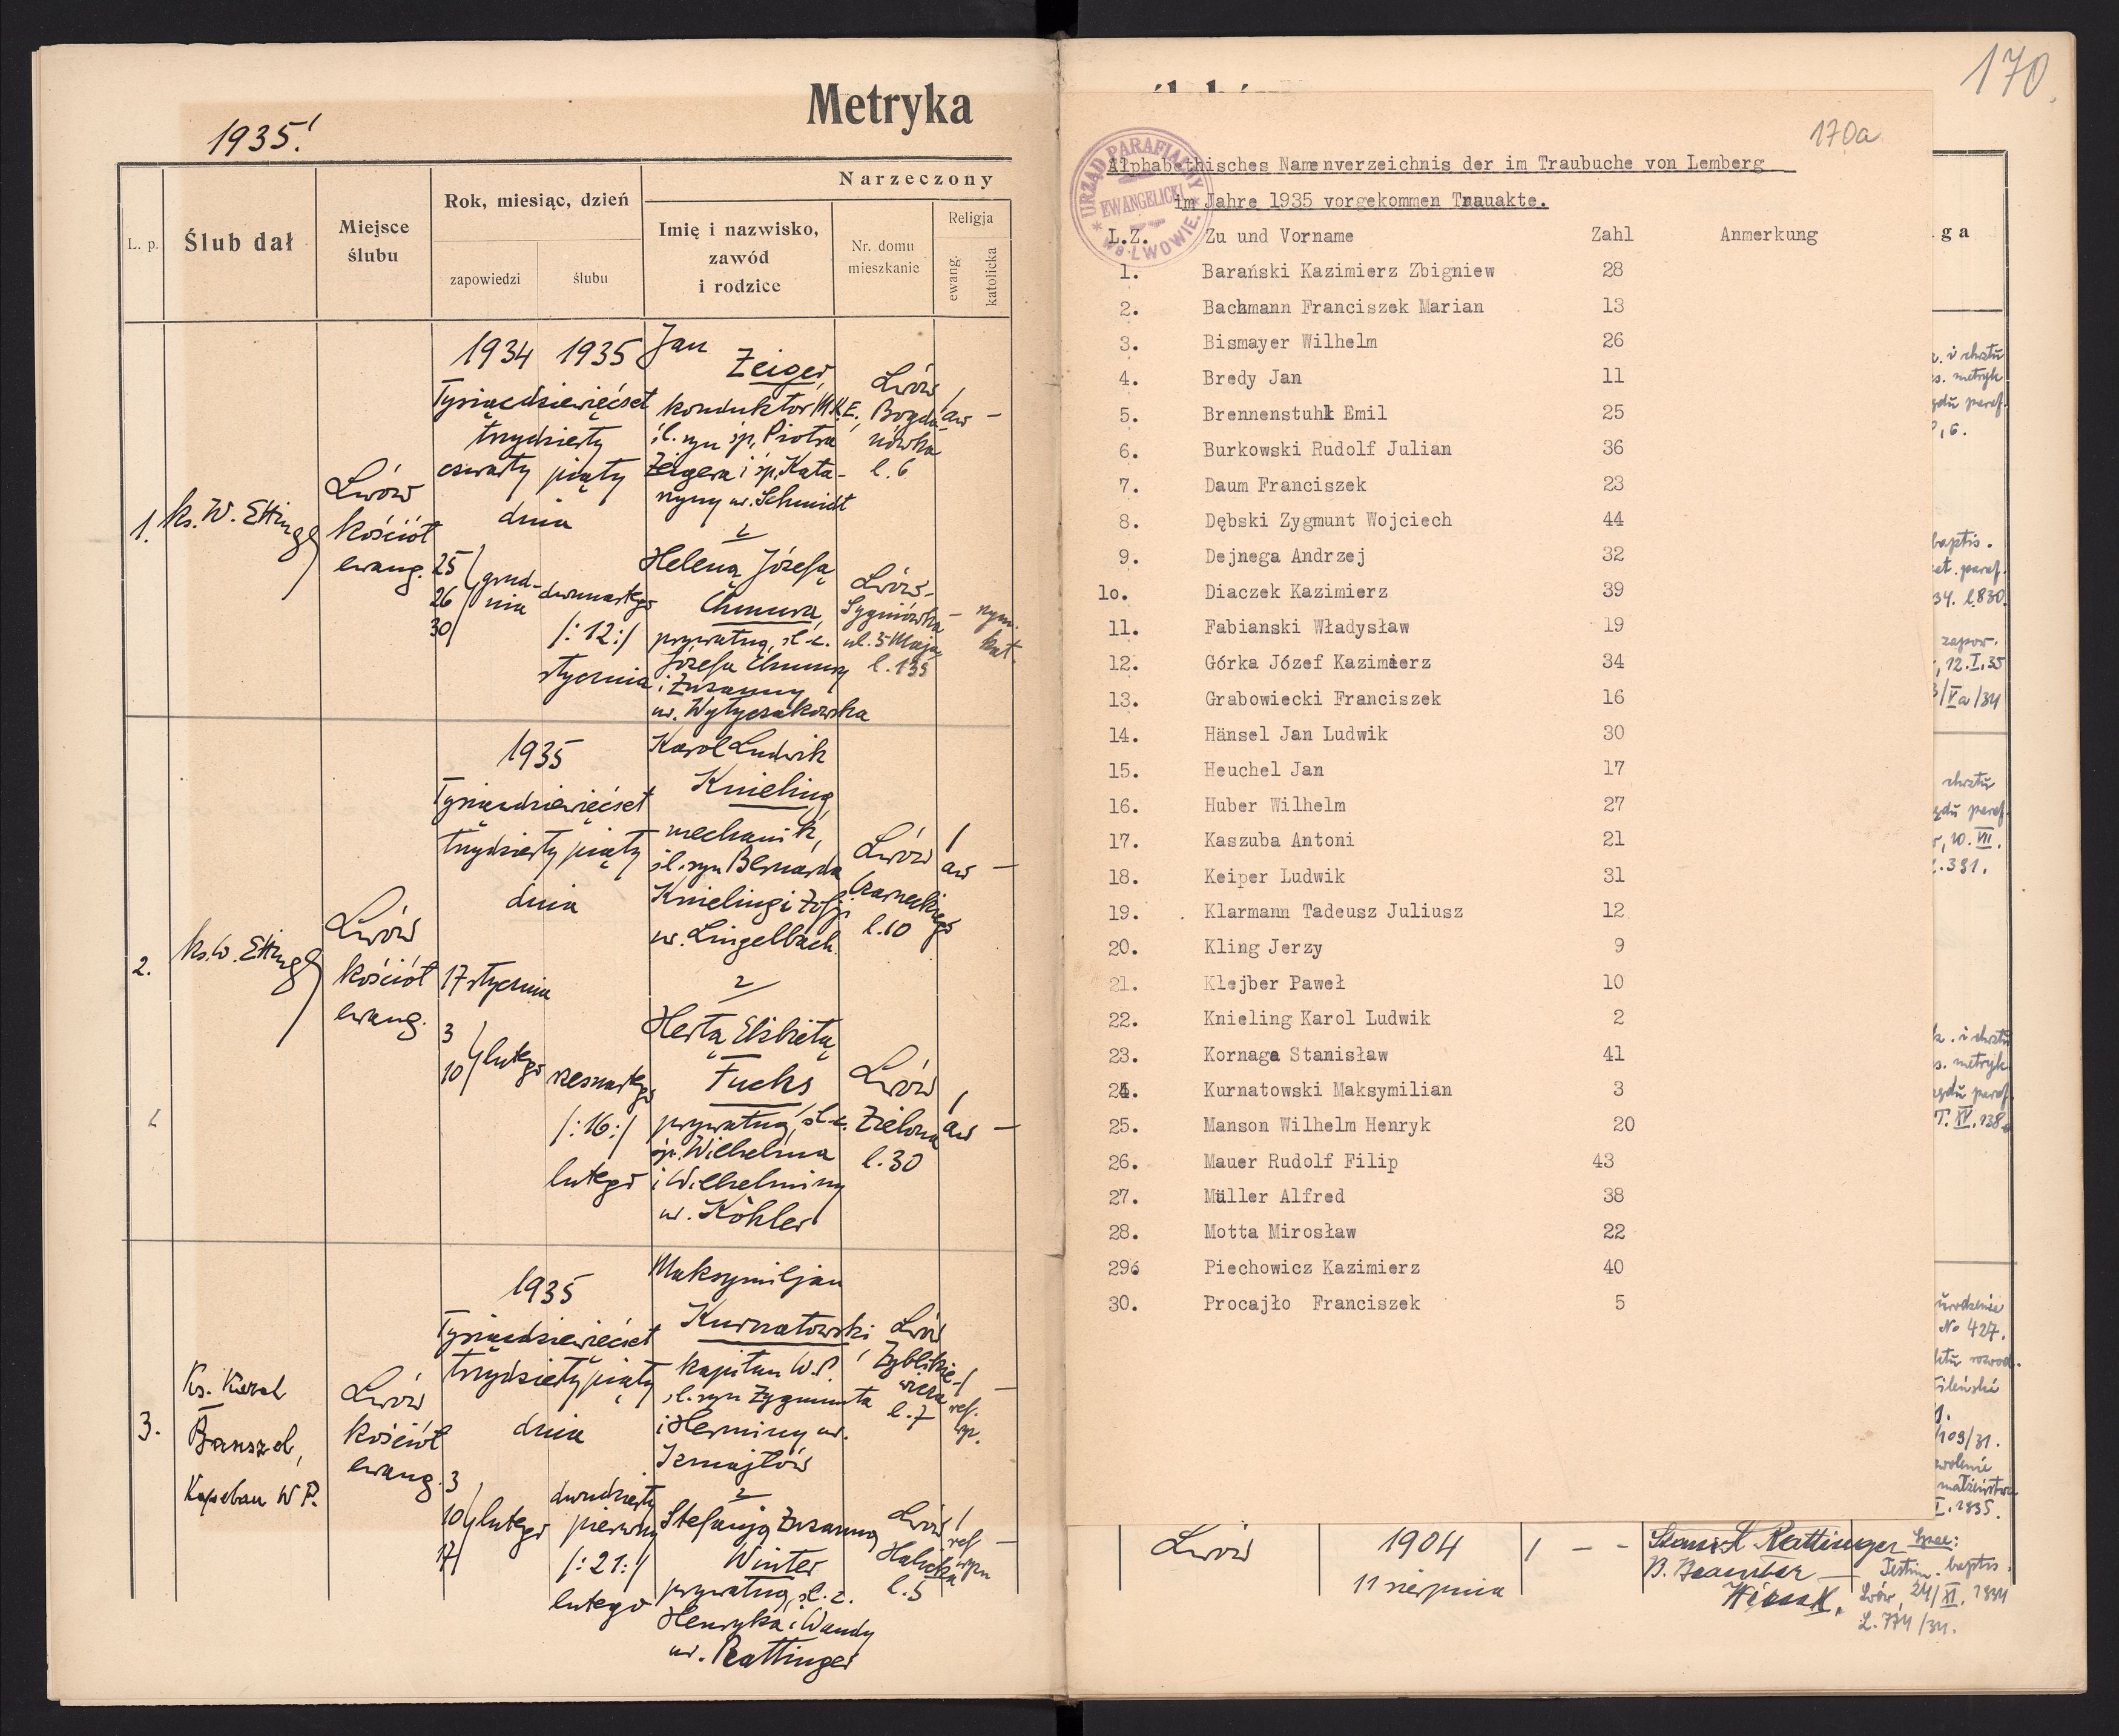 Metryka
1935!
L. p.
Ślub dał
Miejsce
ślubu
Rok, miesiąc, dzień
zapowiedzi
ślubu
Narzeczony
Imię i nazwisko,
zawód
i rodzice
Nr. domu
mieszkanie
Religja
ewang.
katolicka
1.
ks. W. Ettinger
Lwów
kościół
ewang.
1934 1935
Tysiącdziewięćset
trzydziesty
czwarty piąty
dnia
25
26 grud-
30 nia
dwunastego
/:12:/
stycznia
Jan
Zeiger,
konduktor M.K.E.,
śl. syn śp. Piotra
Zeigera i śp. Kata-
rzyny ur. Schmidt
z
Heleną Józefą
Chmura,
prywatną, śl. c.
Józefa Chmury
i Zuzanny
ur. Wytyczakowska
Lwów
Bogda-
nówka
l. 6
/
aw –
Lwów-
Sygniówka
ul. 3 Maja
l. 135
– rzym.
kat.
2.
ks. W. Ettinger
Lwów
kościół
ewang.
1935
Tysiącdziewięćset
trzydziesty piąty
dnia
17 stycznia
3
10 lutego
szesnastego
/:16:/
lutego
Karol Ludwik
Knieling
mechanik,
śl. syn Bernarda
Knieling i Zofji
ur. Lingelbach
z
Hertą Elżbietą
Fuchs
prywatną, śl. c.
śp. Wilhelma
i Wilhelminy
ur. Köhler
Lwów
Czarneckiego
l. 10
/
aw –
Lwów
Zielona
l. 30
/
aw –
3.
Ks. Karol
Banszel,
Kapelan W.P.
Lwów
kościół
ewang.
1935
Tysiącdziewięćset
trzydziesty piąty
dnia
3
10 lutego
17
dwudziesty
pierwszy
/:21:/
lutego
Maksymiljan
Kurnatowski,
kapitan W.P.,
śl. syn Zygmunta
i Herminy ur.
z
Stefanją Zuzanną
Winter
prywatną, śl. c.
Henryka i Wandy
ur. Rattinger
Lwów
Zyblikie-
wicza
l. 7
/ –
ref.
Lwów
Halicka
l. 5
/
ref –
170.
170a
URZĄD PARAFJALNY
EWANGELICKI
WE LWOWIE.
Alphabethisches Namenverzeichnis der im Traubuche von Lemberg
im Jahre 1935 vorgekommen Trauakte.
L.Z. Zu und Vorname Zahl Anmerkung
1. Barański Kazimierz Zbigniew 28
2. Bachmann Franciszek Marian 13
3. Bismayer Wilhelm 26
4. Bredy Jan 11
5. Brennenstuhl Emil 25
6. Burkowski Rudolf Julian 36
7. Daum Franciszek 23
8. Dębski Zygmunt Wojciech 44
9. Dejnega Andrzej 32
1o. Diaczek Kazimierz 39
11. Fabianski Władysław 19
12. Górka Józef Kazimierz 34
13. Grabowiecki Franciszek 16
14. Hänsel Jan Ludwik 30
15. Heuchel Jan 17
16. Huber Wilhelm 27
17. Kaszuba Antoni 21
18. Keiper Ludwik 31
19. Klarmann Tadeusz Juliusz 12
20. Kling Jerzy 9
21. Klejber Paweł 10
22. Knieling Karol Ludwik 2
23. Kornaga Stanisław 41
24. Kurnatowski Maksymilian 3
25. Manson Wilhelm Henryk 20
26. Mauer Rudolf Filip 43
27. Müller Alfred 38
28. Motta Mirosław 22
296 Piechowicz Kazimierz 40
30. Procajło Franciszek 5
g a
i chrztu
metryk
paraf.
6.
baptis.
paraf.
34. l. 830.
zapow.
12.I.35
/Va/34
chrztu
paraf.
10. VII.
381.
i chrztu
metryk
paraf.
T. IV. 138
urodzenie
No 427.
rozwod.
109/31.
małżeństwa
I. 1935.
Lwów
1904
11 sierpnia
/ – –
Rattinger
Testim. baptis.
Lwów, 24/XI. 1934
L. 774/34.